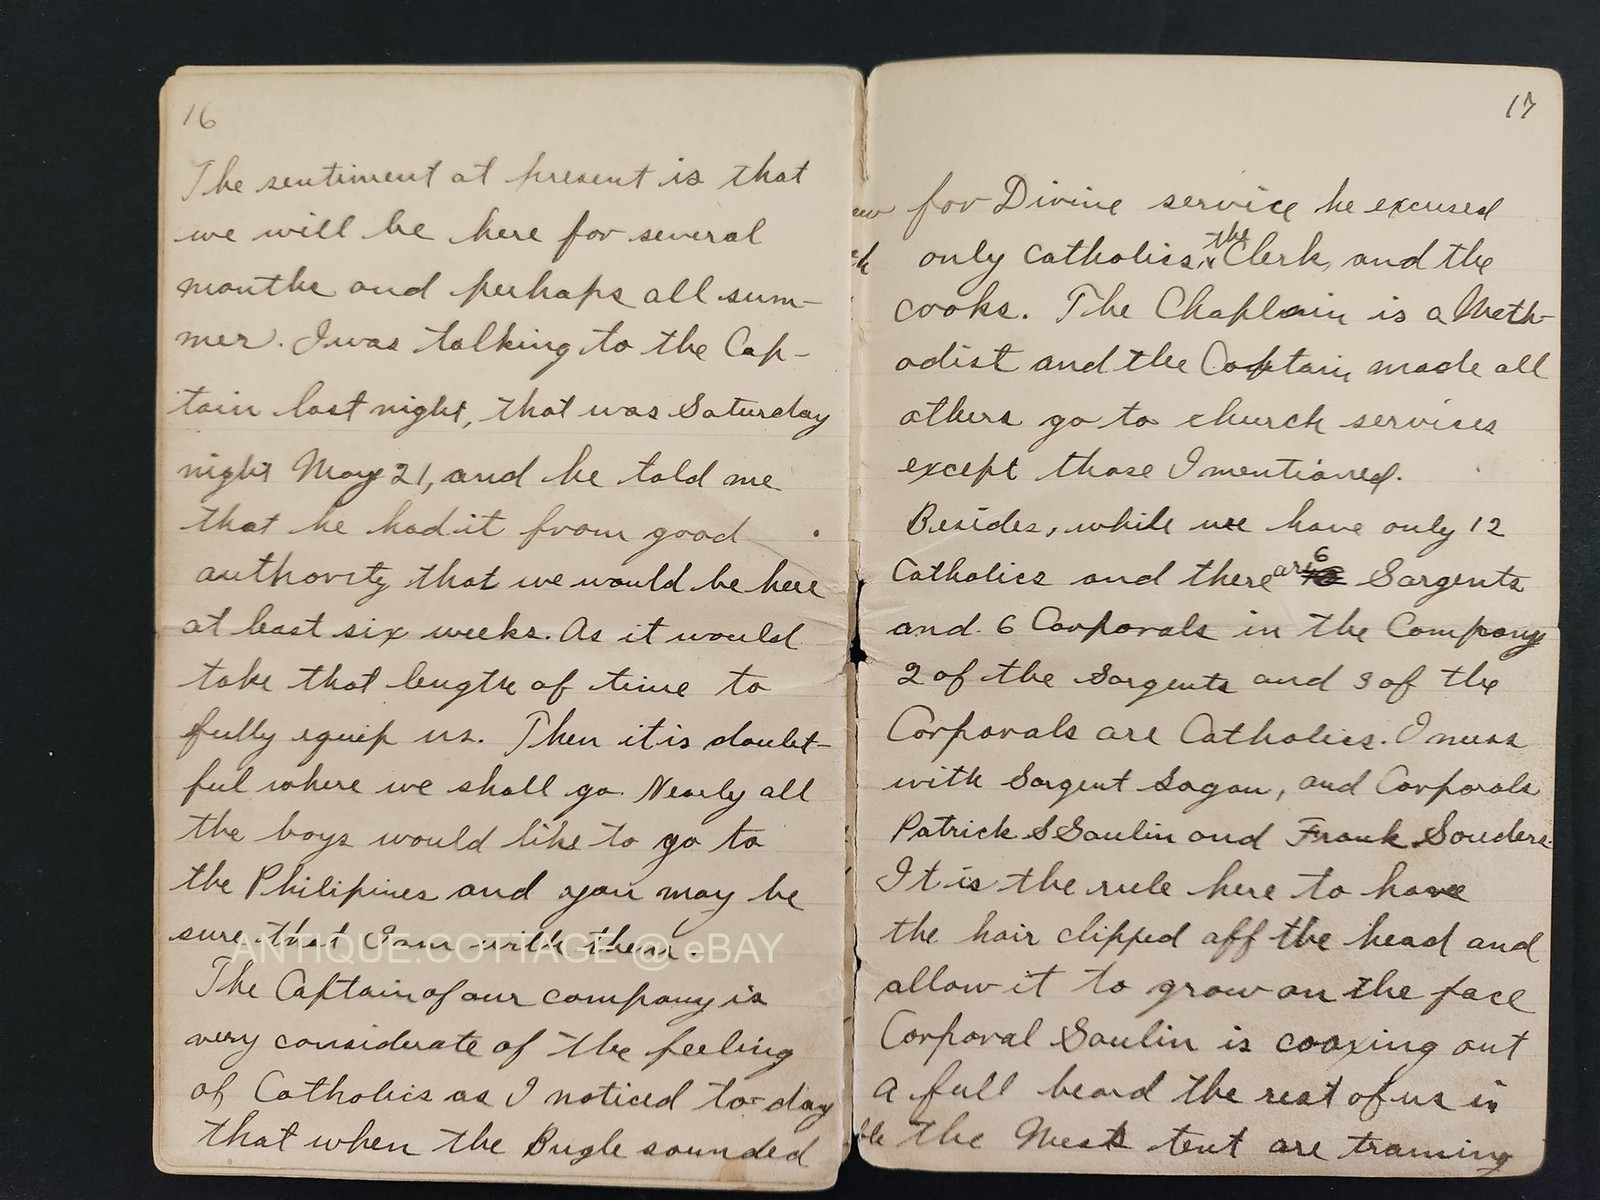 16
The sentiment at present is that
we will be here for several
months and perhaps all sum-
mer. I was talking to the Cap-
tain last night, that was Saturday
night May 21, and he told me
that he had it from good
authority that we would be here
at least six weeks. As it would
take that length of time to
fully equip us. Then it is doubt-
ful where we shall go. Nearly all
the boys would like to go to
the Philipines and you may be
sure that I am with them.
The Captain of our company is
very considerate of the feeling
of Catholics as I noticed to-day
that when the Bugle sounded
17
for Divine service he excused
only Catholics, the Clerk, and the
cooks. The Chaplain is a Meth-
odist and the Captain made all
others go to church services
except those I mentioned.
Besides, while we have only 12
Catholics and there are 6 Sargents
and 6 Corporals in the Company
2 of the Sargents and 3 of the
Corporals are Catholics. I mess
with Sargent Sagan, and Corporals
Patrick S Saulin and Frank Souders.
It is the rule here to have
the hair clipped off the head and
allow it to grow on the face
Corporal Saulin is coaxing out
a full beard the rest of us in
the Mess tent are training
ANTIQUE.COTTAGE @ eBAY